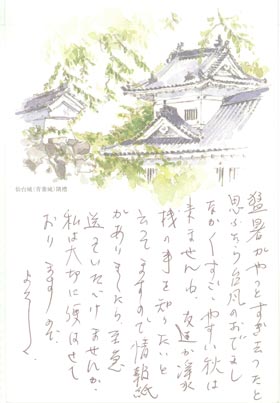 仙台城(青葉城)隅櫓
猛暑がやっとすぎ去ったと
思ったら台風のおでまし
なかなかすごしやすい秋は
来ませんね。友達が浄水
機の事を知りたいと
云ってますので情報紙
がありましたら至急
送っていただけませんか。
私は大切に使はせて
おりますので、
よろしく